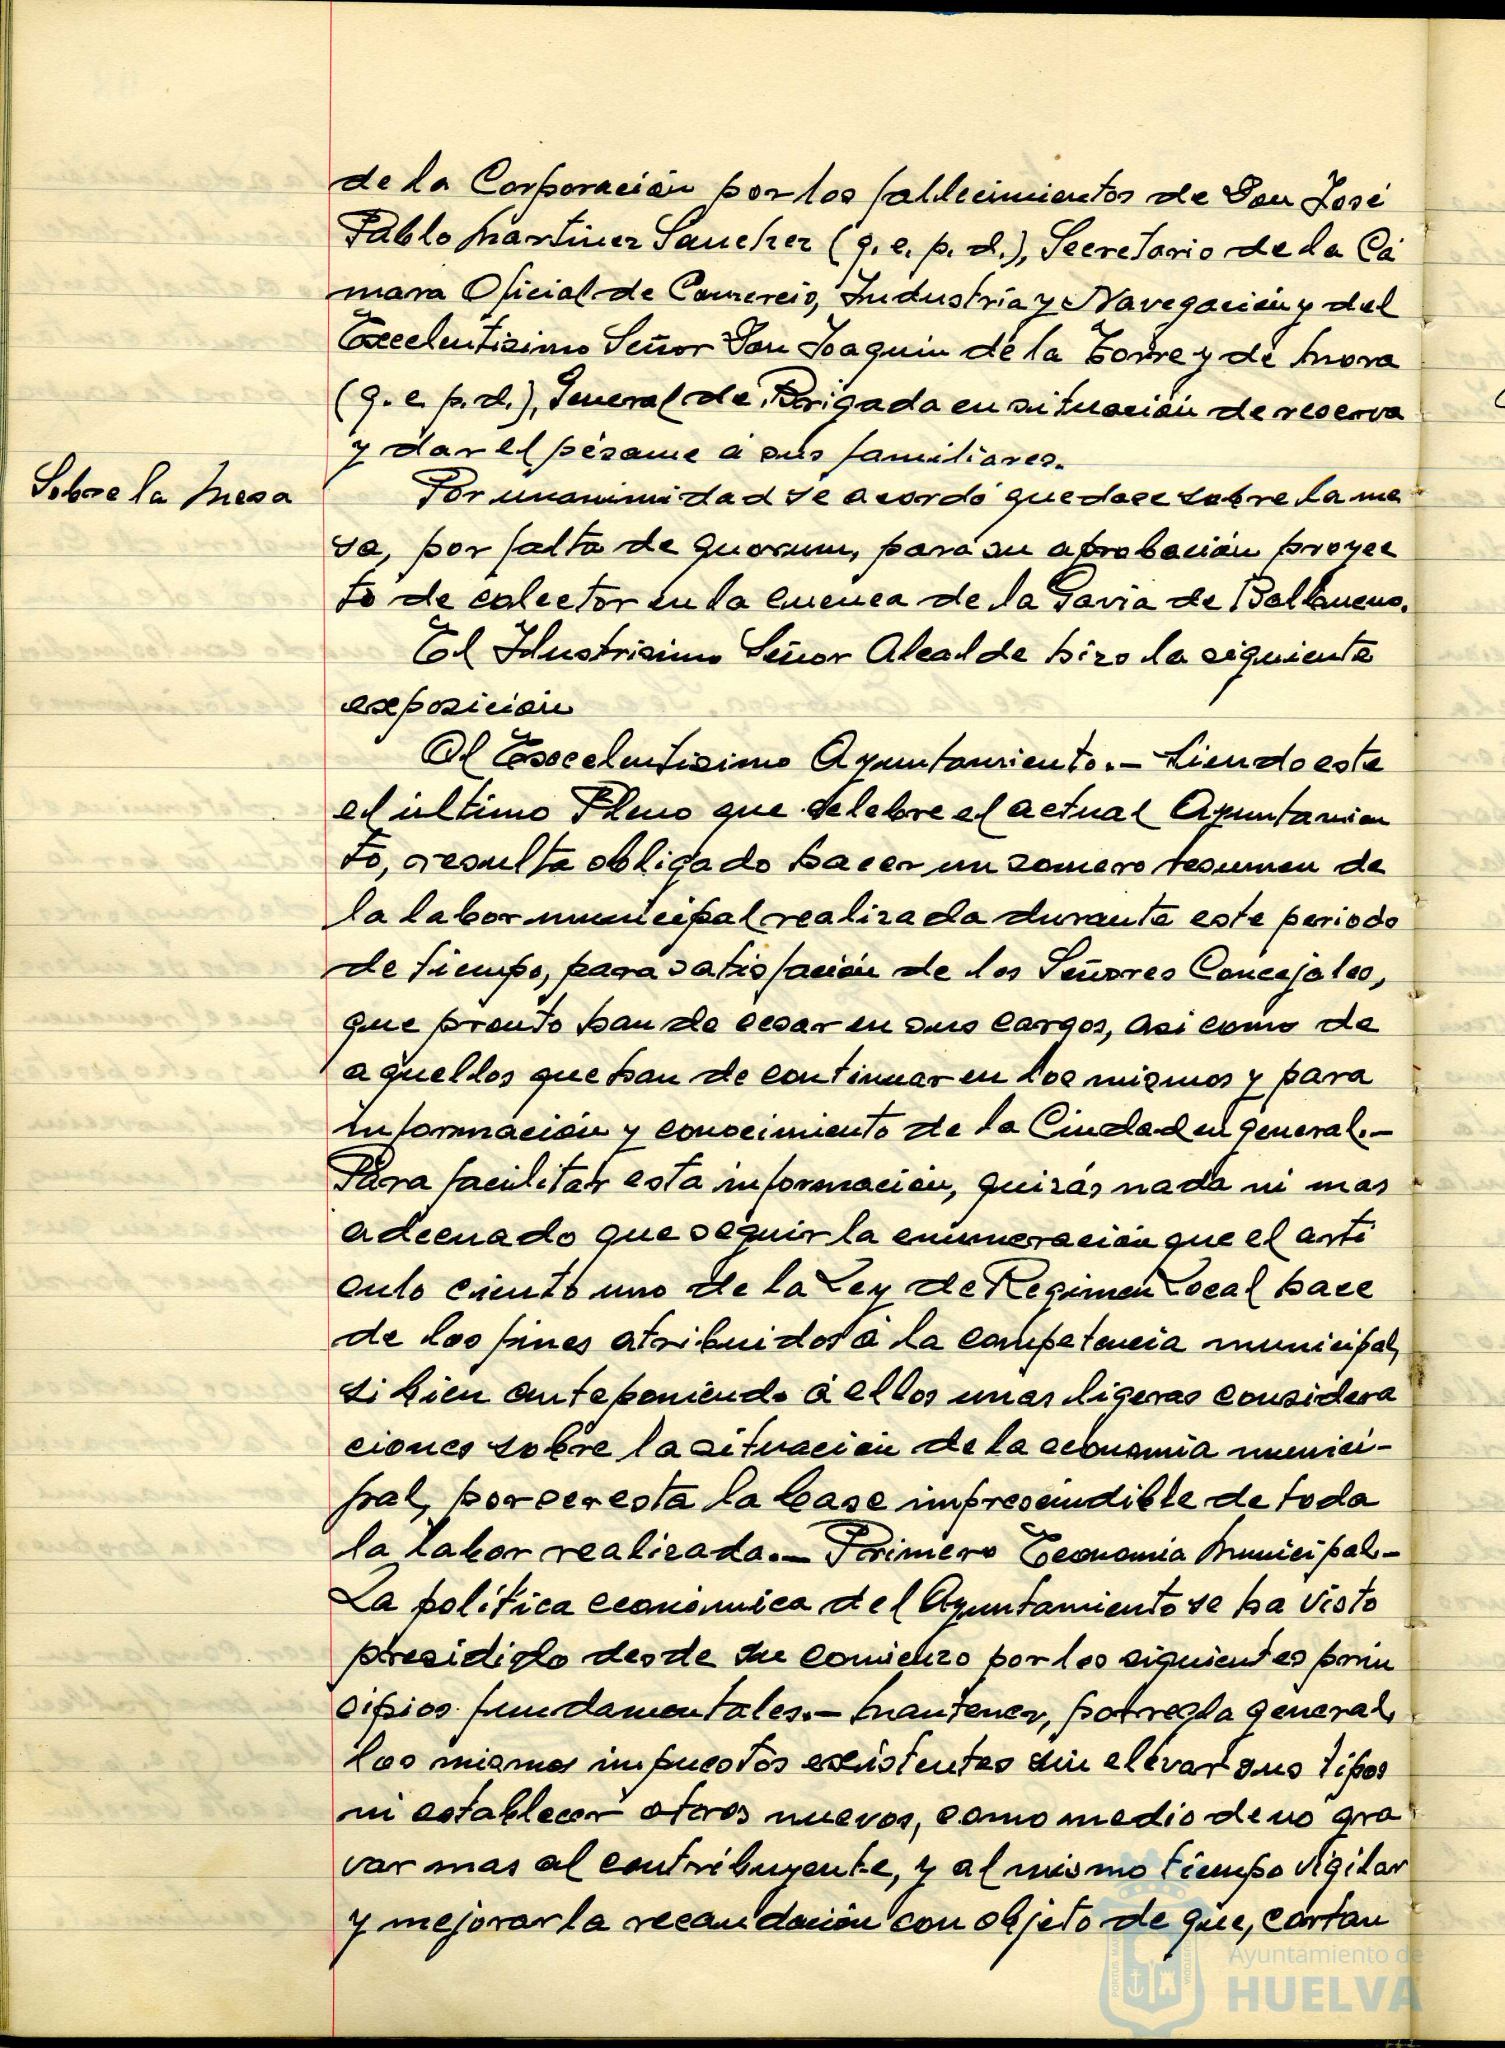 de la Corporación por los fallecimientos de Don José
Pablo Martinez Sanchez (q. e. p. d.), Secretario de la Cá
mara Oficial de Comercio, Industria y Navegación y del
Excelentisimo Señor Don Joaquin de la Torre y de Mora
(q. e. p. d.), General de Brigada en situación de reserva
y dar el pésame á sus familiares.
Sobre la Mesa
Por unanimidad se acordó quedase sobre la me
sa, por falta de quorum, para su aprobación proyec
to de colector en la cuenca de la Gavia de Ballaneno.
El Ilustrisimo Señor Alcalde hizo la siguiente
exposición
Al Excelentisimo Ayuntamiento.- Siendo este
el último Pleno que celebre el actual Ayuntamien
to, resulta obligado hacer un somero resumen de
la labor municipal realizada durante este periodo
de tiempo, para satisfación de los Señores Concejales,
que pronto han de cesar en sus cargos, asi como de
aquellos que han de continuar en los mismos y para
información y conocimiento de la Ciudad en general.-
Para facilitar esta información, quizás nada ni mas
adecuado que seguir la enumeración que el arti
culo ciento uno de la Ley de Regimen Local hace
de los fines atribuidos á la competencia municipal,
si bien anteponiendo á ellos unas ligeras considera
ciones sobre la situación de la economia munici-
pal, por ser esta la base impresindible de toda
la labor realizada.- Primero Economia Municipal.-
La política económica del Ayuntamiento se ha visto
presidido desde su comienzo por los siguientes prin
cipios fundamentales.- Mantener, por regla general,
los mismos impuestos existentes sin elevar sus tipos
ni establecer otros nuevos, como medio de no gra
var mas al contribuyente, y al mismo tiempo vigilar
y mejorar la recaudación con objeto de que, cortan
Ayuntamiento de
HUELVA